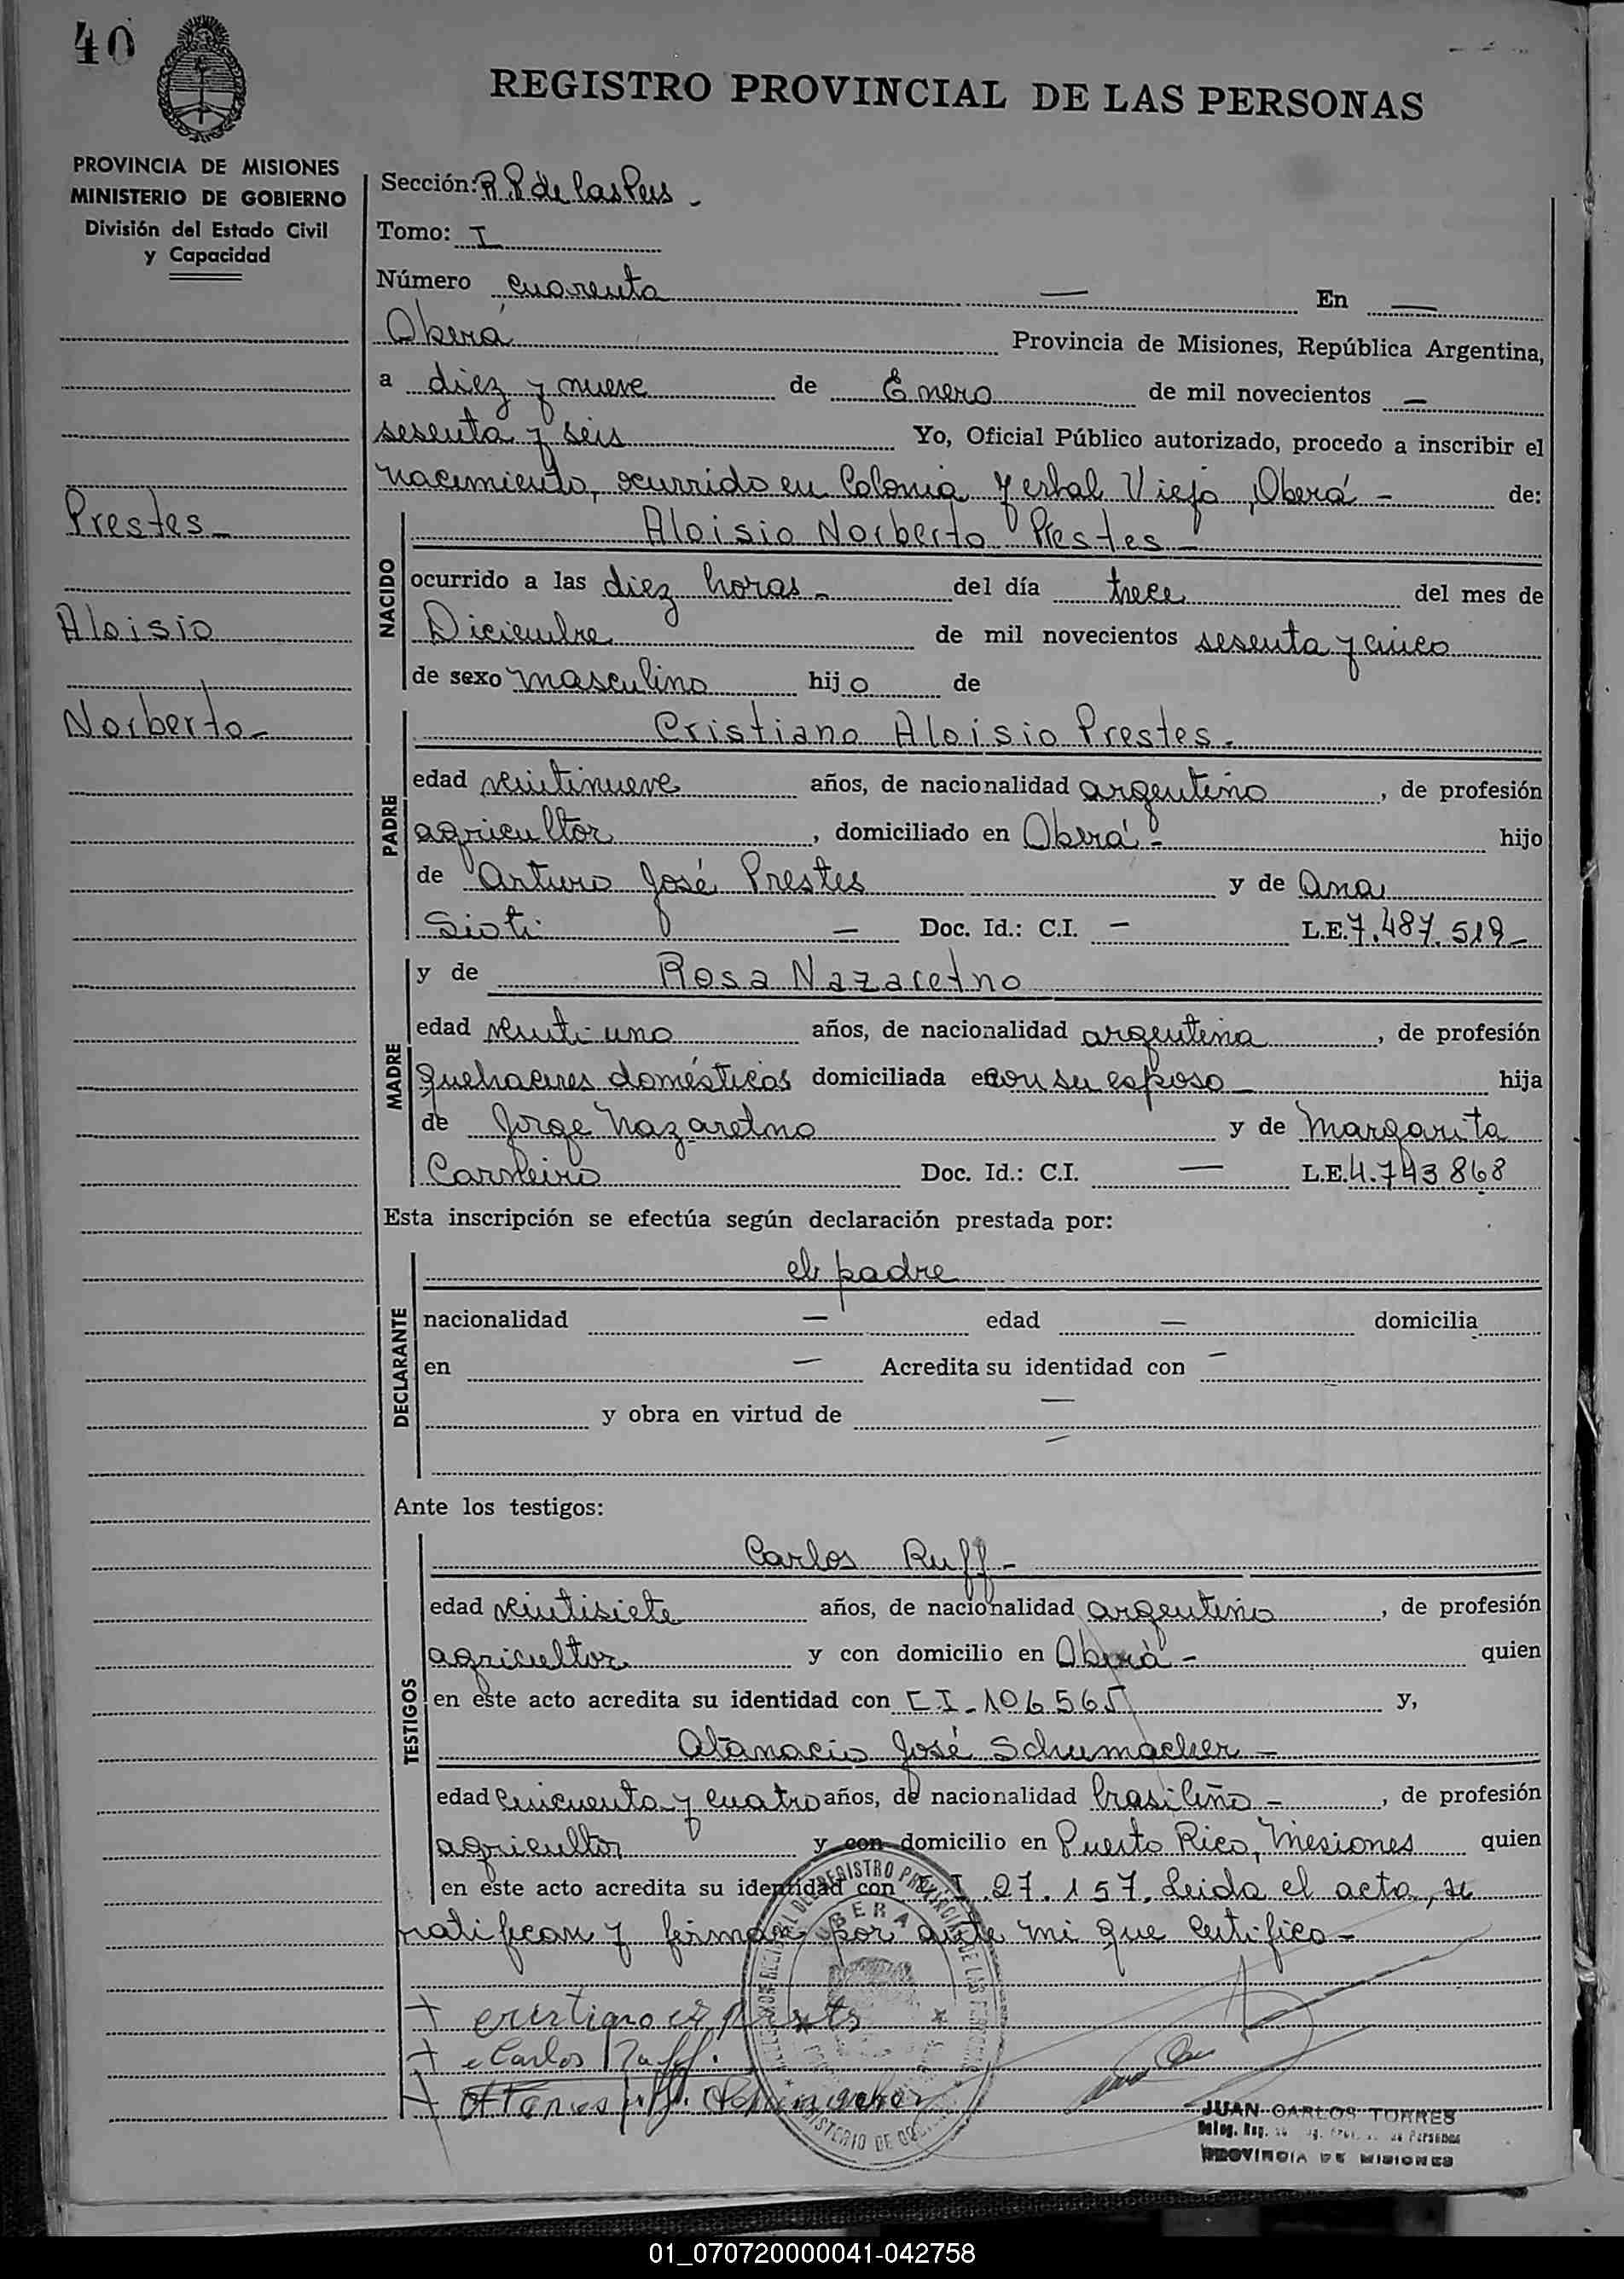 40
REGISTRO PROVINCIAL DE LAS PERSONAS
PROVINCIA DE MISIONES
MINISTERIO DE GOBIERNO
División del Estado Civil
y Capacidad
Prestes
Aloisio
Norberto
Sección: R P de las Pers
Tomo: I
Número cuarenta — En —
Oberá Provincia de Misiones, República Argentina,
a diez y nueve de Enero de mil novecientos —
sesenta y seis Yo, Oficial Público autorizado, procedo a inscribir el
nacimiento, ocurrido en Colonia Yerbal Viejo, Oberá - de:
NACIDO
Aloisio Norberto Prestes -
ocurrido a las diez horas - del día trece del mes de
Diciembre de mil novecientos sesenta y cinco
de sexo masculino hijo de
PADRE
Cristiano Aloisio Prestes.
edad veintinueve años, de nacionalidad argentino, de profesión
agricultor, domiciliado en Oberá - hijo
de Arturo José Prestes y de Ana
Sioti — Doc. Id.: C.I. — L.E. 7.487.519 -
MADRE
y de Rosa Nazaretno
edad veinti uno años, de nacionalidad argentina, de profesión
quehaceres domésticos domiciliada con su esposo hija
de Jorge Nazaretno y de Margarita
Carneiro Doc. Id.: C.I. — L.E. 4.743.868
Esta inscripción se efectúa según declaración prestada por:
DECLARANTE
el padre
nacionalidad — edad — domicilia
en — Acredita su identidad con —
y obra en virtud de —
—
Ante los testigos:
TESTIGOS
Carlos Ruff -
edad veintisiete años, de nacionalidad argentino, de profesión
agricultor y con domicilio en Oberá - quien
en este acto acredita su identidad con C I - 106565 y,
Atanacio José Schumacher -
edad cincuenta y cuatro años, de nacionalidad brasileño -, de profesión
agricultor y con domicilio en Puerto Rico, Misiones quien
en este acto acredita su identidad con I 27.157, Leida el acta, se
ratifican y firman por ante mi que certifico -
OBERA
+ Carlos Ruff.
JUAN CARLOS TORRES
PROVINCIA DE MISIONES
01_070720000041-042758